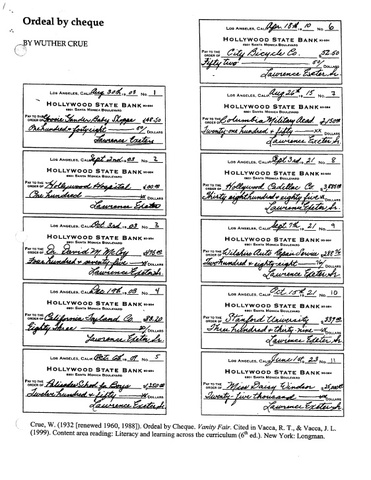 Ordeal by cheque
BY WUTHER CRUE
LOS ANGELES, CALIF. Aug 30th, 03 No. 1
HOLLYWOOD STATE BANK
6801 SANTA MONICA BOULEVARD
PAY TO THE
ORDER OF Baby Shoppe $148.50
One hundred + forty eight 50/ DOLLARS
Lawrence Exeter
LOS ANGELES, CALIF. Sept 2nd, 03 No. 2
HOLLYWOOD STATE BANK
6801 SANTA MONICA BOULEVARD
PAY TO THE
ORDER OF Hollywood Hospital $100.00
One hundred DOLLARS
Lawrence Exeter
LOS ANGELES, CALIF. Oct 3rd, 03 No. 3
HOLLYWOOD STATE BANK
6801 SANTA MONICA BOULEVARD
PAY TO THE
ORDER OF Dr. David M. McCoy $175.00
One hundred + seventy five DOLLARS
Lawrence Exeter Sr.
LOS ANGELES, CALIF. Dec 19th, 03 No. 4
HOLLYWOOD STATE BANK
6801 SANTA MONICA BOULEVARD
PAY TO THE
ORDER OF California Toyland Co. $83.20
Eighty three 20/ DOLLARS
Lawrence Exeter Sr.
LOS ANGELES, CALIF. Oct 6th, 09 No. 5
HOLLYWOOD STATE BANK
6801 SANTA MONICA BOULEVARD
PAY TO THE
ORDER OF Palisades School for Boys $1,250.00
Twelve hundred + fifty DOLLARS
Lawrence Exeter Sr.
LOS ANGELES, CALIF. Apr 18th, 10 No. 6
HOLLYWOOD STATE BANK
6801 SANTA MONICA BOULEVARD
PAY TO THE
ORDER OF City Bicycle Co. 52.50
Fifty two 50/ DOLLARS
Lawrence Exeter Sr.
LOS ANGELES, CALIF. Aug 26th, 15 No. 7
HOLLYWOOD STATE BANK
6801 SANTA MONICA BOULEVARD
PAY TO THE
ORDER OF Columbia Military Acad. 2,150.00
Twenty-one hundred + fifty xx DOLLARS
Lawrence Exeter Sr.
LOS ANGELES, CALIF. Sept 3rd, 21 No. 8
HOLLYWOOD STATE BANK
6801 SANTA MONICA BOULEVARD
PAY TO THE
ORDER OF Hollywood Cadillac Co. 3,885.00
Thirty eight hundred + eighty five DOLLARS
Lawrence Exeter Sr.
LOS ANGELES, CALIF. Sept 7th, 21 No. 9
HOLLYWOOD STATE BANK
6801 SANTA MONICA BOULEVARD
PAY TO THE
ORDER OF Wilshire Auto Repair Service 288.76
Two hundred + eighty-eight DOLLARS
Lawrence Exeter Sr.
LOS ANGELES, CALIF. Oct 15th, 21 No. 10
HOLLYWOOD STATE BANK
6801 SANTA MONICA BOULEVARD
PAY TO THE
ORDER OF Stanford University 339.00
Three hundred + thirty nine DOLLARS
Lawrence Exeter Sr.
LOS ANGELES, CALIF. June 1st, 23 No. 11
HOLLYWOOD STATE BANK
6801 SANTA MONICA BOULEVARD
PAY TO THE
ORDER OF Miss Daisy Windsor 25,000.00
Twenty-five thousand DOLLARS
Lawrence Exeter Sr.
Crue, W. (1932 [renewed 1960, 1988]). Ordeal by Cheque. Vanity Fair. Cited in Vacca, R. T., & Vacca, J. L.
(1999). Content area reading: Literacy and learning across the curriculum (6th ed.). New York: Longman.